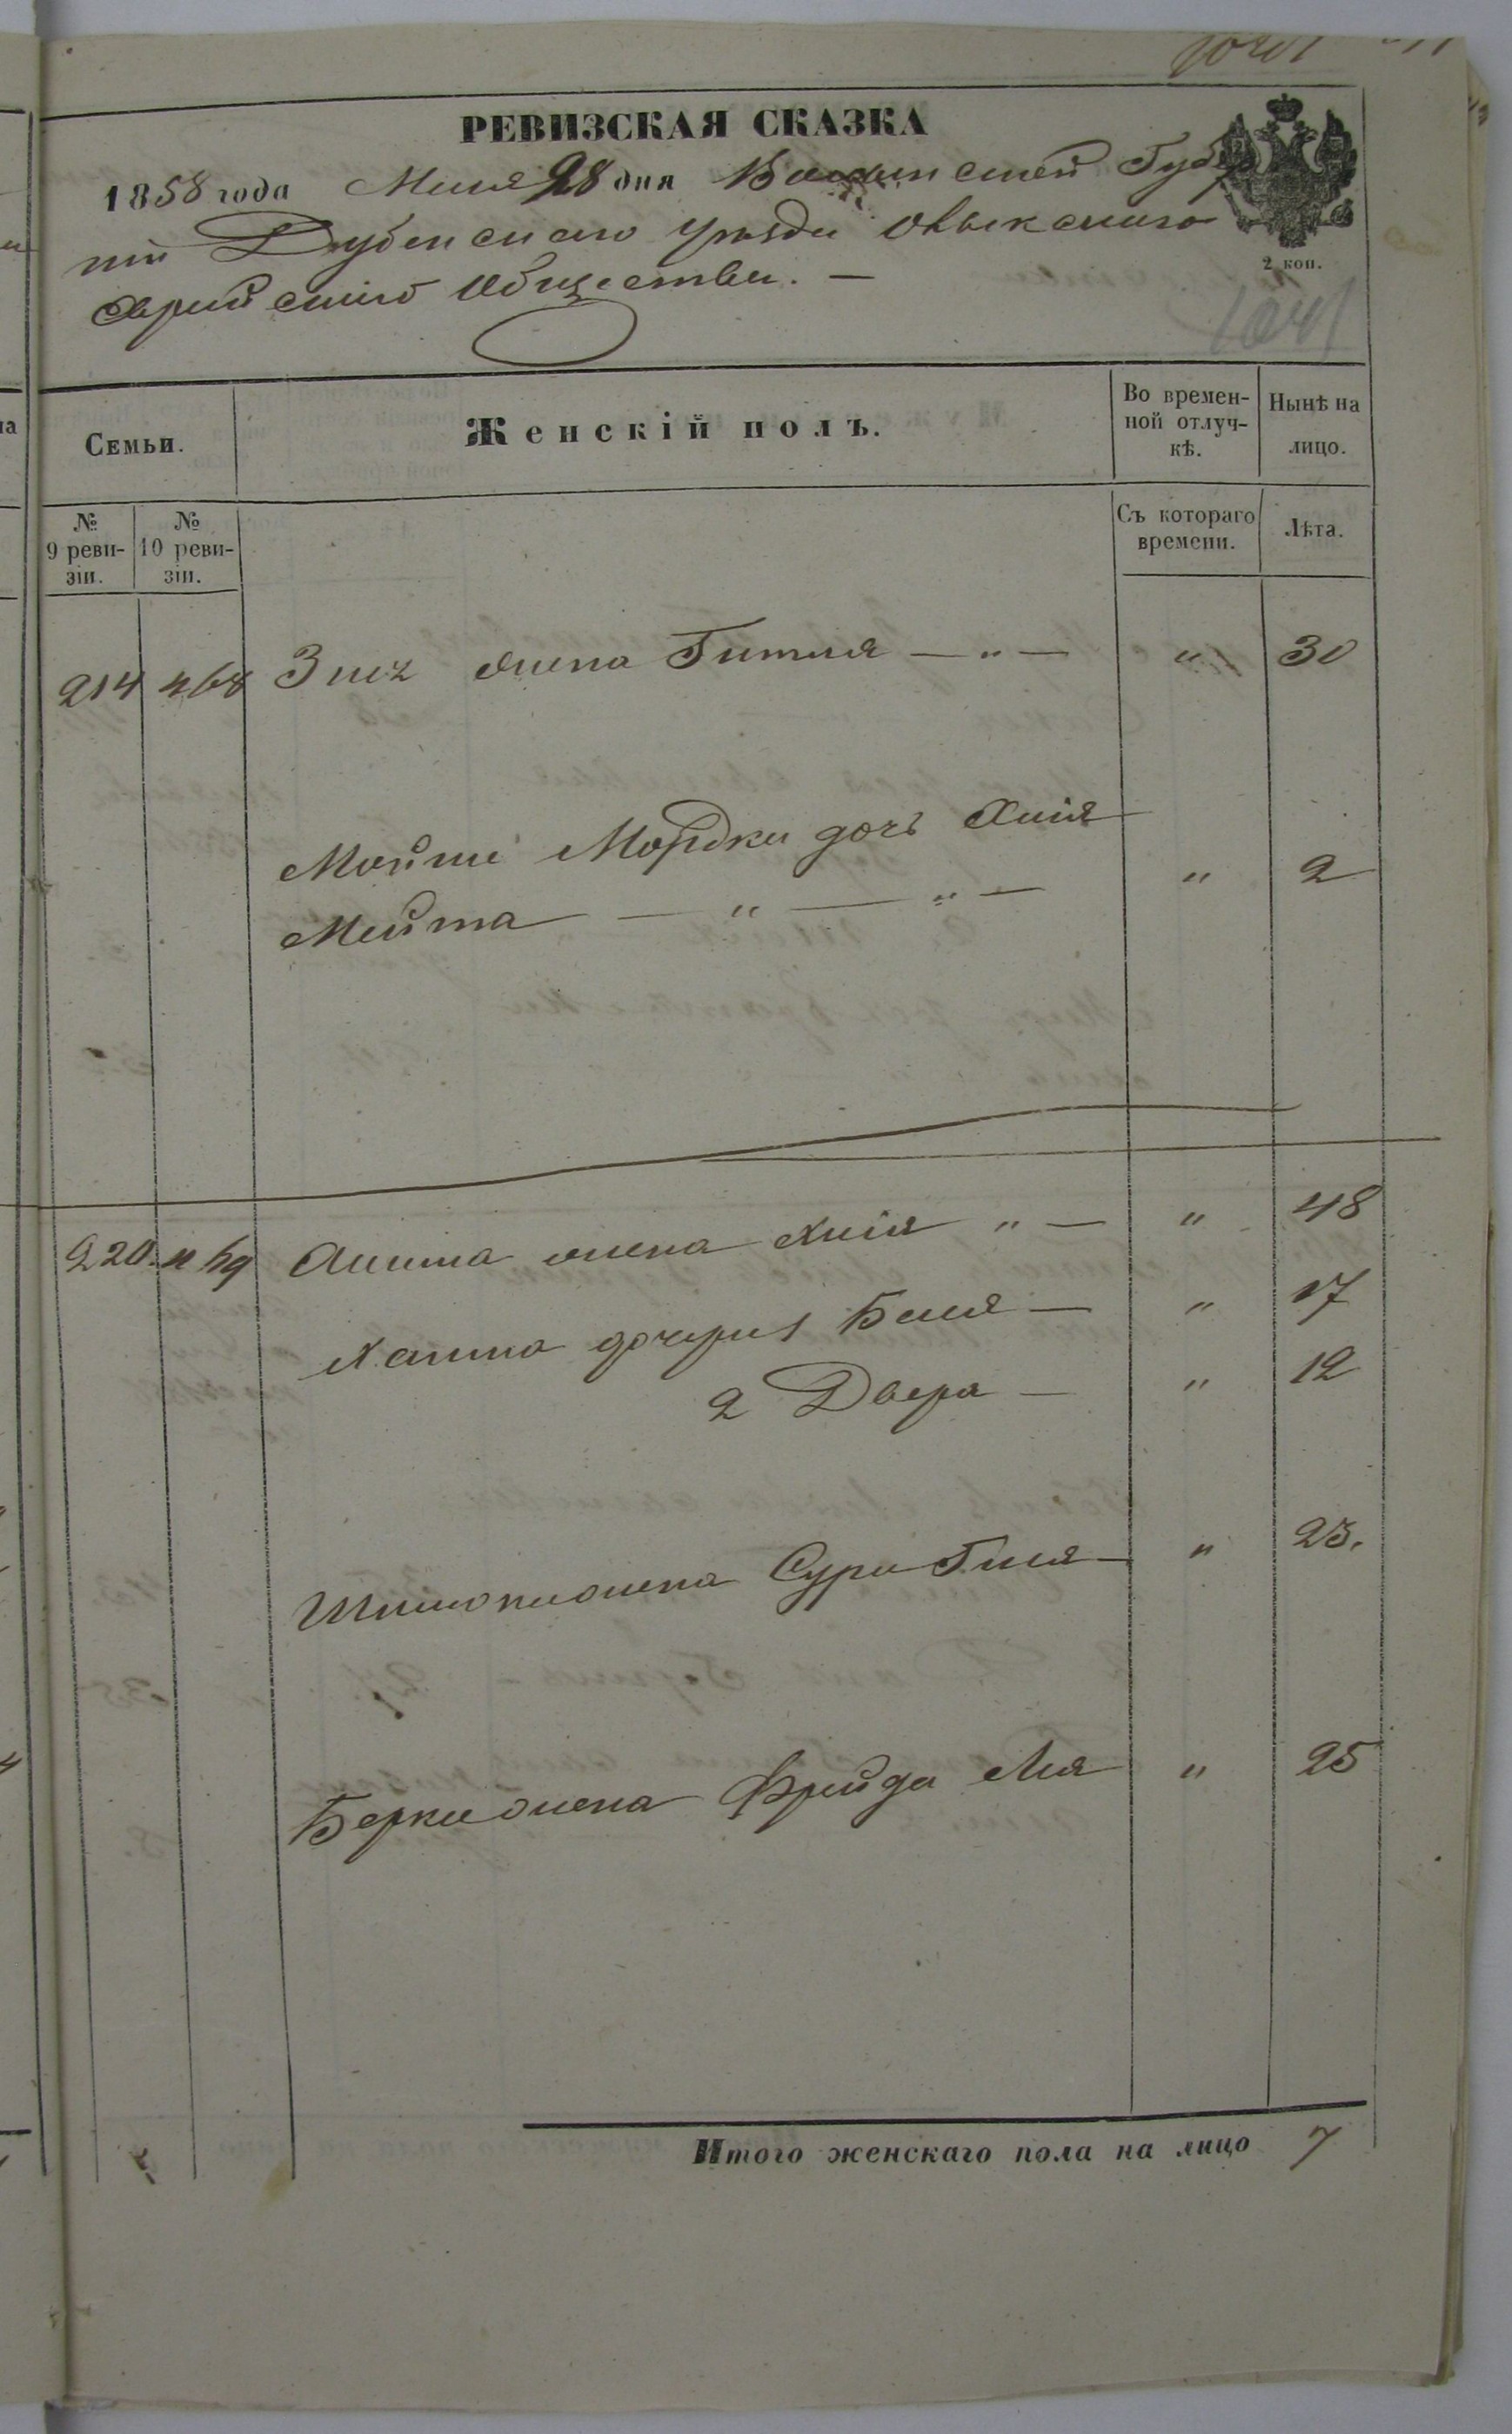 РЕВИЗСКАЯ СКАЗКА
1858 года Мая 28 дня Волынской Губер
нии Дубенскаго уезда Олыкскаго
Еврейскаго Общества. —
2 коп.
1041
Семьи.
Женскій полъ.
Во времен-
ной отлуч-
кѣ.
Нынѣ на
лицо.
№
9 реви-
зіи.
№
10 реви-
зіи.
Съ котораго
времени.
Лѣта.
214 468 жена Гитля — „ — „ 30
Мордки дочь Хаия
Мейта — „ — „ — „ 2
220 469 жена Хаия „ — „ 48
дочери 1 Бася — „ 17
2 Двера — „ 12
жена Сура Гися — „ 23.
Берки жена Фрейда Лия „ 25
Итого женскаго пола на лицо 7